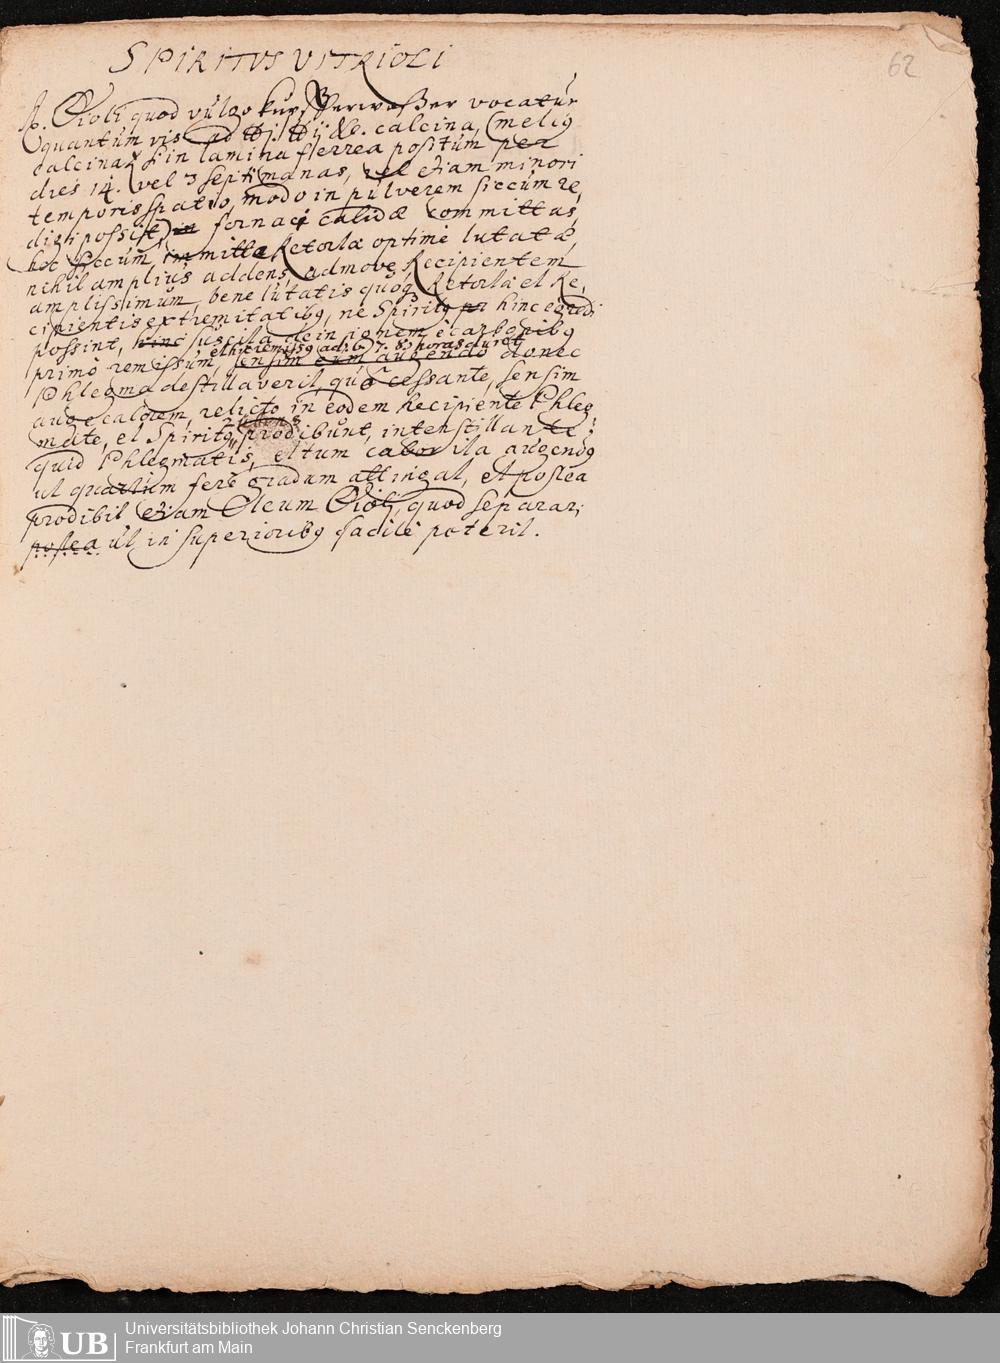 62
SPIRITVS VITRIOLI
℞. ioli quod vulgo kupfferwaßer vocatur
quantum vis ad ℔j. ℔ij &c. calcina, (meliq
calcinat si in lamina ferrea positum per
dies 14. vel 3 septimanas, vel etiam minori
temporis spatio, modo in pulverem siccum re,
digi possit,) in fornaci calidæ committas,
hoc siccum immitte Retortæ optimè lutatæ,
nihil amplius addens, admove Recipientem
amplissimum, bene lutatis quoq Retortæ et Re,
cipientis extremitatibq, ne Spiritq pr hinc egredi
possint, hinc suscita dein ignem è carbonibq
et hic remissq ad 6. 7. 8 horas duret
primò remissum, sensim eum augendo donec
Phlegma destillaverit, quo cessante, sensim
auge calorem, relicto in eodem Recipiente Phleg
mate, et Spiritq prodibunt, interstillante
quid Phlegmatis, et tum calor ita augendq
ut quartum ferè gradum attingat, et postea
prodibit etiam Oleum ioli, quod separari
postea ut in superioribq facilè poterit.
UB
Universitätsbibliothek Johann Christian Senckenberg
Frankfurt am Main